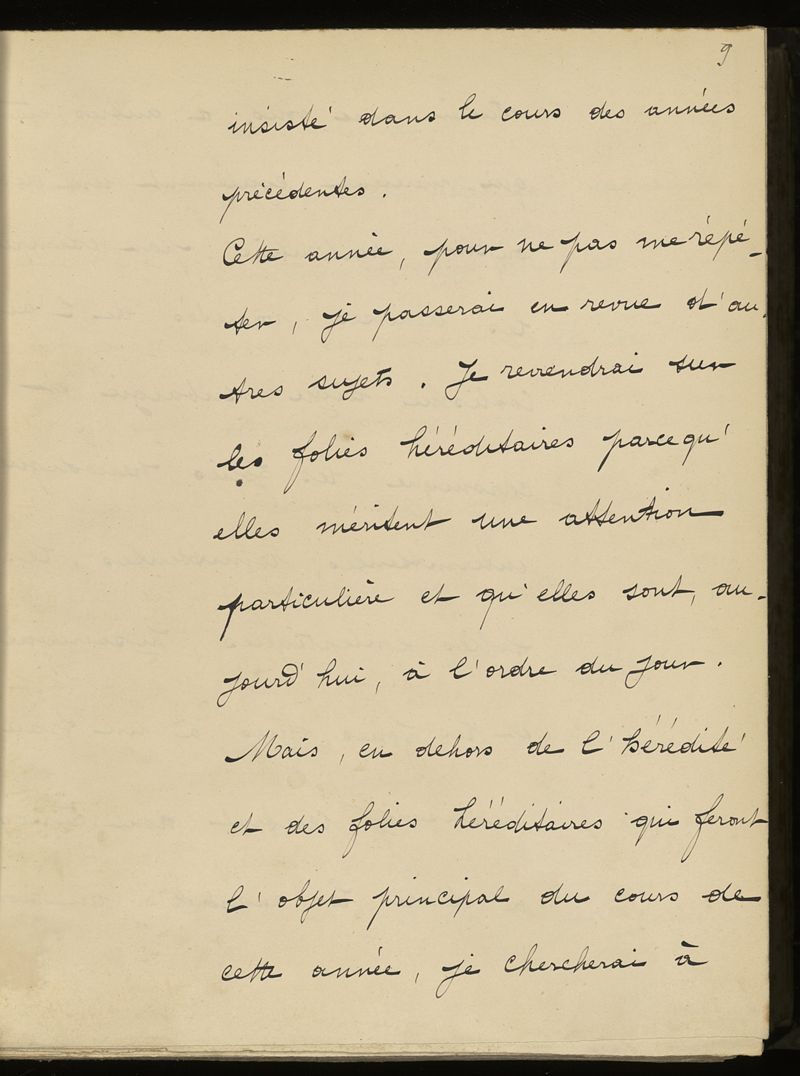 9
insisté dans le cours des années
précédentes.
Cette année, pour ne pas me répé-
ter, je passerai en revue d'au-
tres sujets. Je reviendrai sur
les folies héréditaires parcequ'
elles méritent une attention
particulière et qu'elles sont, au-
jourd'hui, à l'ordre du jour.
Mais, en dehors de l'hérédité
et des folies héréditaires qui feront
l'objet principal du cours de
cette année, je chercherai à